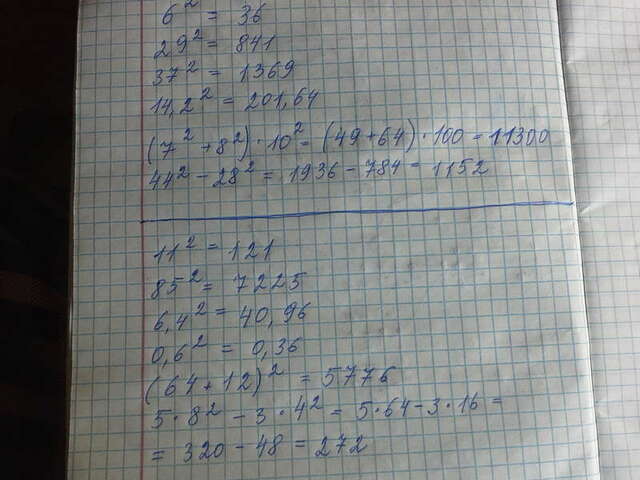 6² = 36
29² = 841
37² = 1369
14,2² = 201,64
(7² + 8²) · 10² = (49 + 64) · 100 = 11300
44² - 28² = 1936 - 784 = 1152
11² = 121
85² = 7225
6,4² = 40,96
0,6² = 0,36
(64 + 12)² = 5776
5 · 8² - 3 · 4² = 5 · 64 - 3 · 16 =
= 320 - 48 = 272